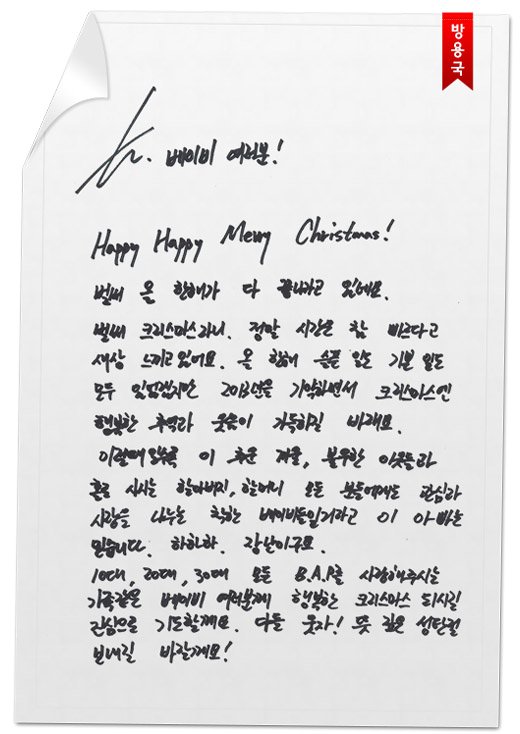 방용국
To. 베이비 여러분!
Happy Happy Merry Christmas!
벌써 올 한해가 다 끝나려고 있네요.
벌써 크리스마스라니. 정말 시간은 참 빠르다고
새삼 느끼고있어요. 올 한해 슬픈 일은 기쁜 일도
모두 있었겠지만 2013년을 기억하면서 크리스마스엔
행복한 추억과 웃음이 가득하길 바래요.
이럴때일수록 이 추운 겨울, 불우한 이웃들과
혼로 사시는 할아버지, 할머니 모든 분들에게도 관심과
사랑을 나누는 착한 베이비들일거라고 이 아빠는
믿습니다. 하하하. 장난이구요.
10대, 20대, 30대 모든 B.A.P를 사랑해주시는
가족같은 베이비 여러분께 행복한 크리스마스 되시길
진심으로 기도할게요. 다들 웃자! 뜻 깊은 성탄절
보내길 바랄게요!